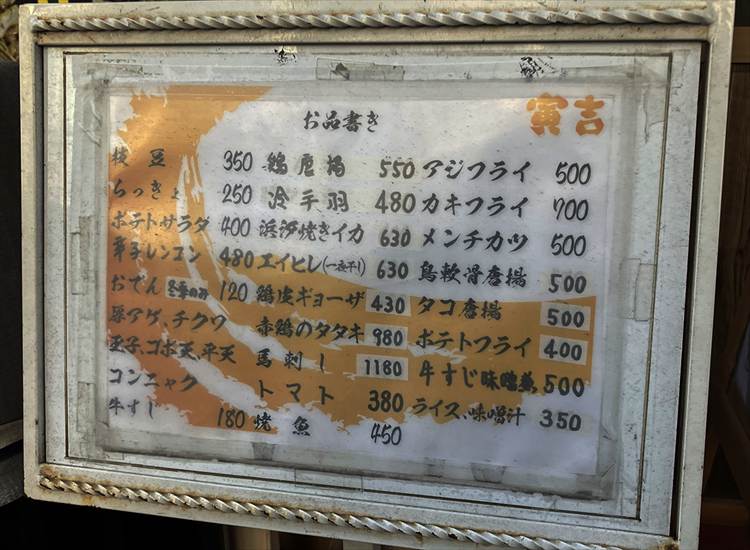 お品書き
寅吉
枝豆 350
らっきょ 250
ポテトサラダ 400
辛子レンコン 480
おでん 冬季のみ 120
厚アゲ、チクワ
玉子、ゴボ天、平天
コンニャク
牛すじ 180
鶏唐揚 550
冷手羽 480
浜汐焼きイカ 630
エイヒレ(一夜干し) 630
鶏皮ギョーザ 430
赤鶏のタタキ 980
馬刺し 1180
トマト 380
焼魚 450
アジフライ 500
カキフライ 700
メンチカツ 500
鳥軟骨唐揚 500
タコ唐揚 500
ポテトフライ 400
牛すじ味噌煮 500
ライス、味噌汁 350